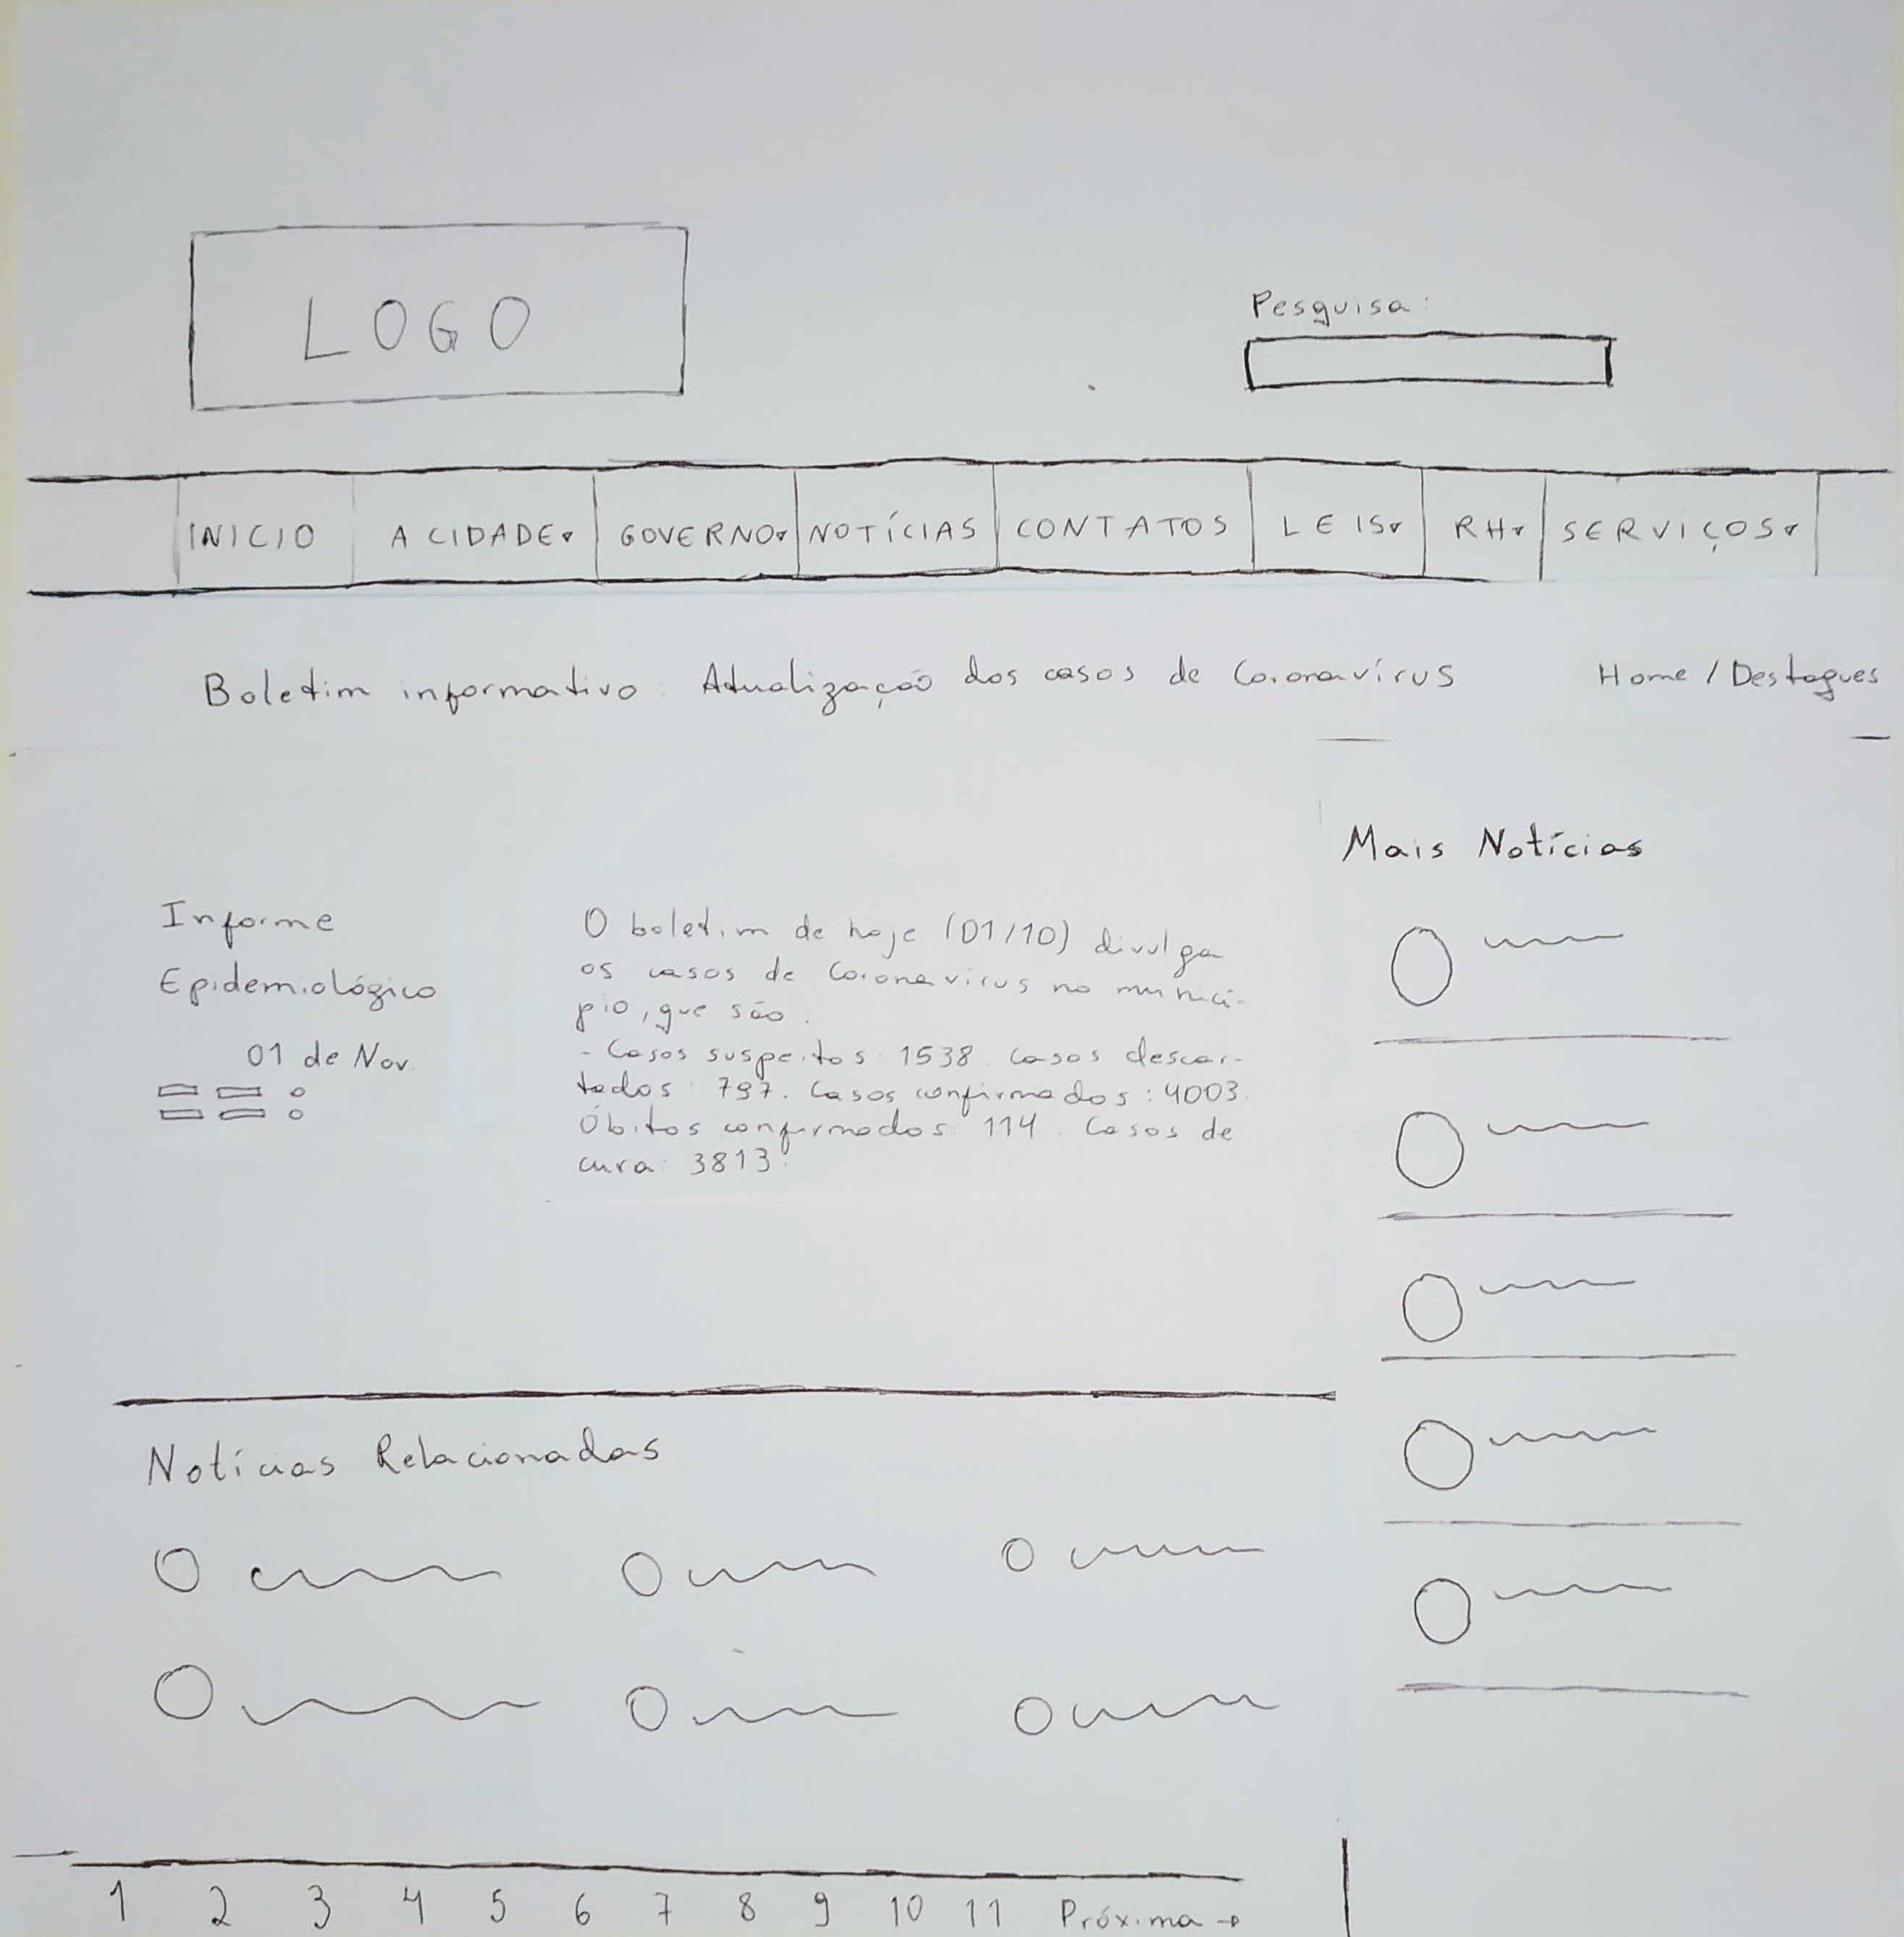 LOGO
Pesquisa:
INICIO A CIDADE GOVERNO NOTÍCIAS CONTATOS LEIS RH SERVIÇOS
Boletim informativo: Atualização dos casos de Coronavírus Home / Destaques
Mais Notícias
Informe
Epidemiológico
01 de Nov.
O boletim de hoje (01/10) divulga
os casos de Coronavírus no municí-
pio, que são.
- Casos suspeitos: 1538. Casos descar-
tados: 797. Casos confirmados: 4003.
Óbitos confirmados: 114. Casos de
cura: 3813.
Notícias Relacionadas
1 2 3 4 5 6 7 8 9 10 11 Próxima →